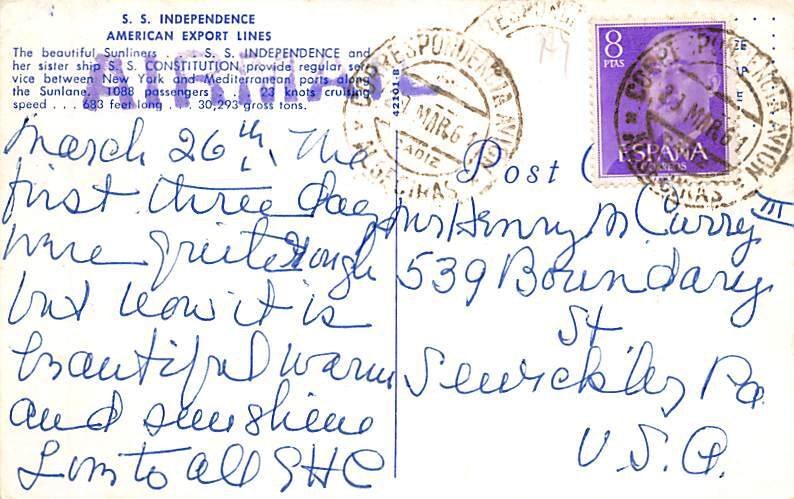 S. S. INDEPENDENCE
AMERICAN EXPORT LINES
The beautiful Sunliners . . . S. S. INDEPENDENCE and
her sister ship S. S. CONSTITUTION provide regular ser-
vice between New York and Mediterranean ports along
the Sunlane. 1088 passengers . . . 23 knots cruising
speed . . . 683 feet long . . . 30,293 gross tons.
42101-B
CORRESPONDENCIA AVION
MAR 6
CADIZ
ALGECIRAS
8
PTAS
ESPAÑA
CORREOS
CORRESPONDENCIA AVION
MAR 6
ALGECIRAS
Post
March 26th. The
first three days
were quite rough
but now it is
beautiful warm
and sunshine
Love to all GHC
Mr Henry M Curry III
539 Boundary
St
Sewickley Pa
U.S.A.